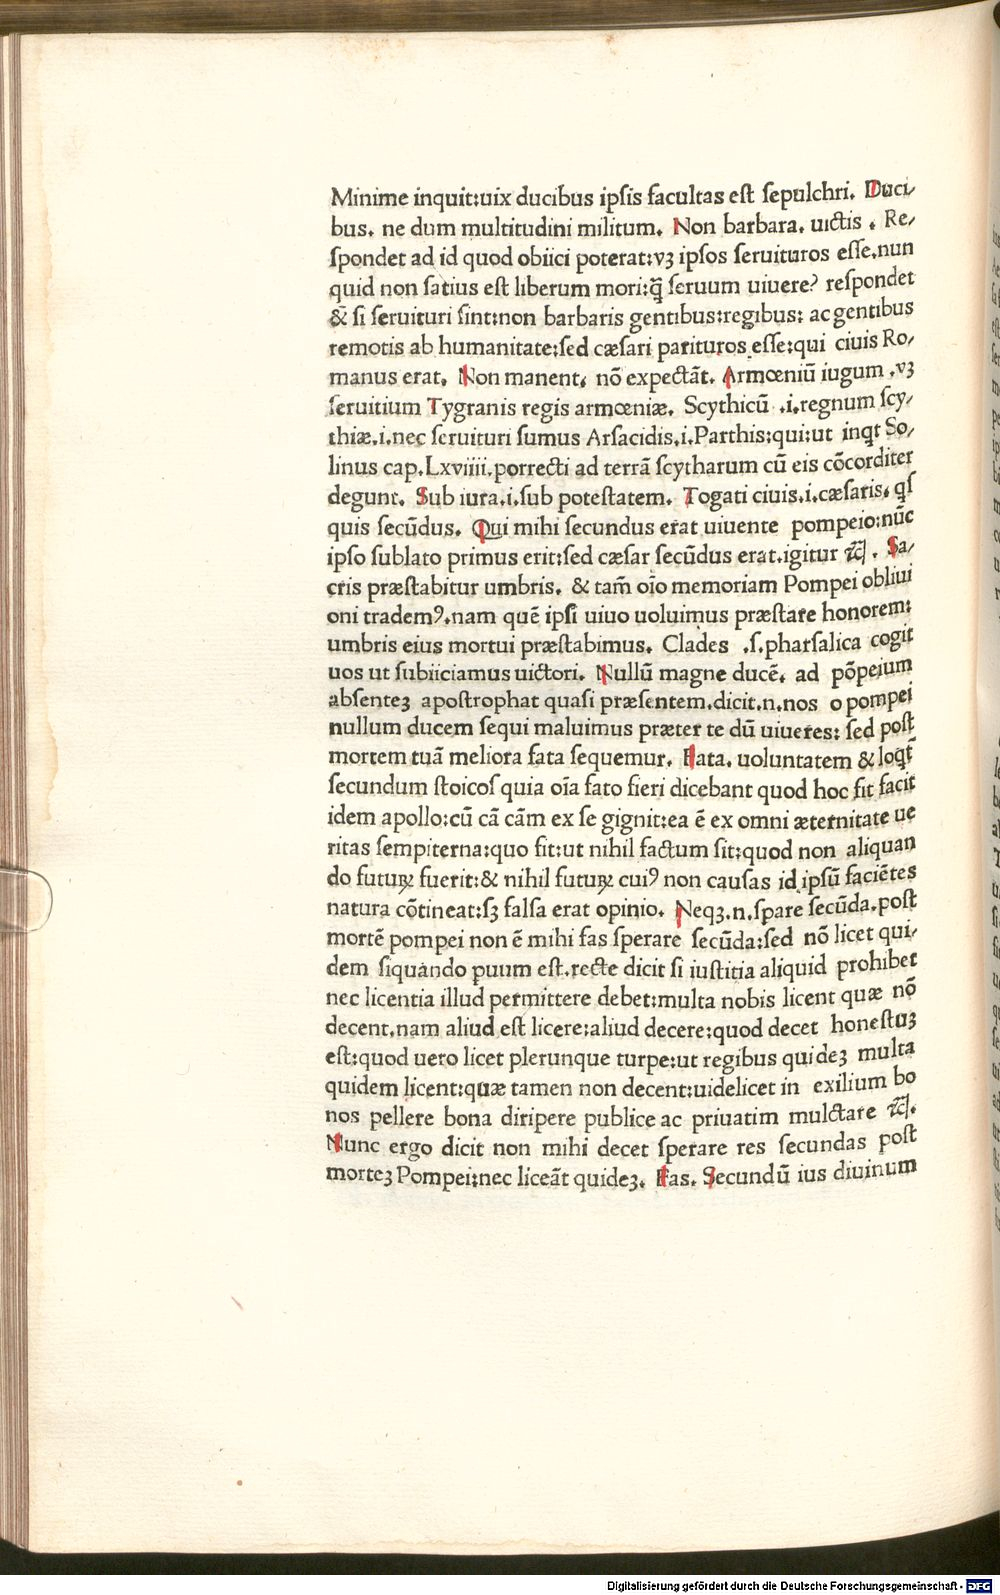 Minime inquit:uix ducibus ipsis facultas est sepulchri. Duci/
bus. ne dum multitudini militum. Non barbara. uictis . Re/
spondet ad id quod obiici poterat:vꝫ ipsos seruituros esse.nun
quid non satius est liberum mori:q̄̃ seruum uiuere? respondet
& si seruituri sint:non barbaris gentibus:regibus: ac gentibus
remotis ab humanitate:sed cæsari parituros esse:qui ciuis Ro/
manus erat. Non manent. nō expectāt. Armœniū iugum .vꝫ
seruitium Tygranis regis armœniæ. Scythicū .i.regnum scy/
thiæ.i.nec seruituri sumus Arsacidis.i.Parthis:qui:ut inqt So/
linus cap.Lxviiii.porrecti ad terrā scytharum cū eis cōcorditer
degunt. Sub iura.i.sub potestatem. Togati ciuis.i.cæsaris. qs
quis secūdus. Qui mihi secundus erat uiuente pompeio:nūc
ipso sublato primus erit:sed cæsar secūdus erat.igitur ⁊c̄. Sa/
cris præstabitur umbris. & tam̄ oīo memoriam Pompei obliui
oni tradem⁹.nam quē ipsi uiuo uoluimus præstare honorem:
umbris eius mortui præstabimus. Clades .s.pharsalica cogit
uos ut subiiciamus uictori. Nullū magne ducē. ad pōpeium
absenteꝫ apostrophat quasi præsentem.dicit.n.nos o pompei
nullum ducem sequi maluimus præter te dū uiueres: sed post
mortem tuā meliora fata sequemur. Fata. uoluntatem & loqt̄
secundum stoicos quia oīa fato fieri dicebant quod hoc fit facit
idem apollo:cū cā cām ex se gignit:ea ē ex omni æternitate ue
ritas sempiterna:quo fit:ut nihil factum sit:quod non aliquan
do futuꝝ fuerit:& nihil futuꝝ cui⁹ non causas id ipsū faciētes
natura cōtineat:sꝫ falsa erat opinio. Neqꝫ.n.spare secūda.post
mortē pompei non ē mihi fas sperare secūda:sed nō licet qui/
dem siquando puum est.recte dicit si iustitia aliquid prohibet
nec licentia illud permittere debet:multa nobis licent quæ nō
decent.nam aliud est licere:aliud decere:quod decet honestuꝫ
est:quod uero licet plerunque turpe:ut regibus quideꝫ multa
quidem licent:quæ tamen non decent:uidelicet in exilium bo
nos pellere bona diripere publice ac priuatim mulctare ⁊c̄.
Nunc ergo dicit non mihi decet sperare res secundas post
morteꝫ Pompei:nec liceāt quideꝫ. Fas. Secundū ius diuinum
Digitalisierung gefördert durch die Deutsche Forschungsgemeinschaft - DFG